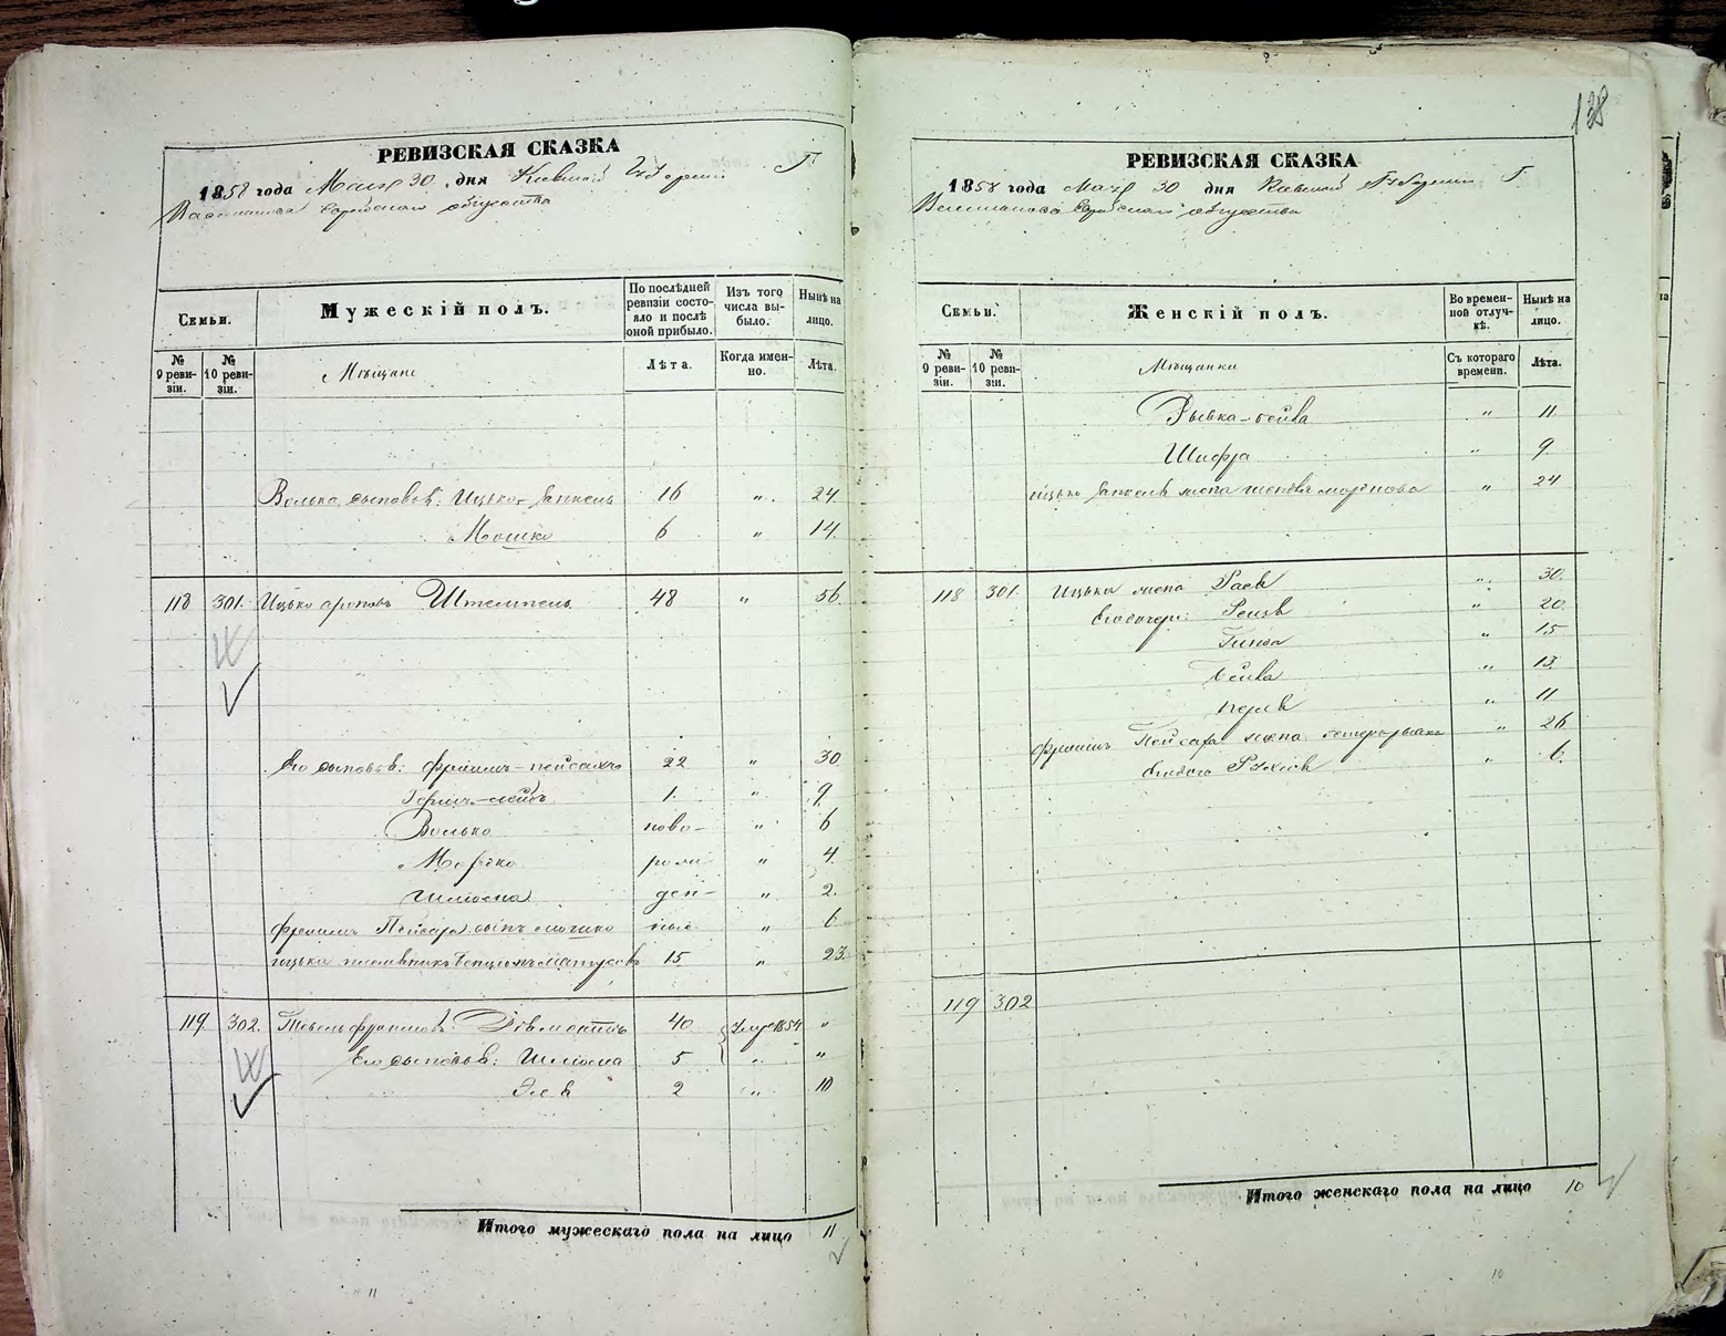 138
РЕВИЗСКАЯ СКАЗКА
1858 года Мая 30 дня Киевской Губернии Г.
Василькова Еврейскаго общества
Семьи.
Мужескій полъ.
По послѣдней ревизіи состояло и послѣ оной прибыло.
Изъ того числа выбыло.
Нынѣ на лицо.
№ 9 ревизіи.
№ 10 ревизіи.
Мѣщане
Лѣта.
Когда именно.
Лѣта.
Волька сыновья: Ицько-Янкель 16 " 24
Мошко 6 " 14
118 301. Ицько Ароновъ Штемпель 48 " 56
Его сыновья: Фроимъ-Пейсахъ 22 " 30
Гершъ-Лейбъ 1 " 9
Волько ново- " 6
Мордко рож " 4
Шліома ден- " 2
Фроимъ Пейсаха сынъ Мошко ные " 6
Ицька племянникъ Бенціонъ 15 " 23
119 302. Фроимовъ 40 Умре 1854 "
Его сыновья: Шліома 5 " "
2 " 10
Итого мужескаго пола на лицо 11
11
РЕВИЗСКАЯ СКАЗКА
1858 года Мая 30 дня Киевской Губернии Г.
Василькова Еврейскаго общества
Семьи.
Женскій полъ.
Во временной отлучкѣ.
Нынѣ на лицо.
№ 9 ревизіи.
№ 10 ревизіи.
Мѣщанки
Съ котораго времени.
Лѣта.
Рывка-Бейла " 11
Шифра " 9
Ицько Янкеля жена " 24
118 301. Ицька жена " 30
Его дочери: " 20
" 15
Бейла " 13
Перля " 11
Фроимъ Пейсаха жена " 26
Его дочь Рухля " 6
119 302
Итого женскаго пола на лицо 10
10